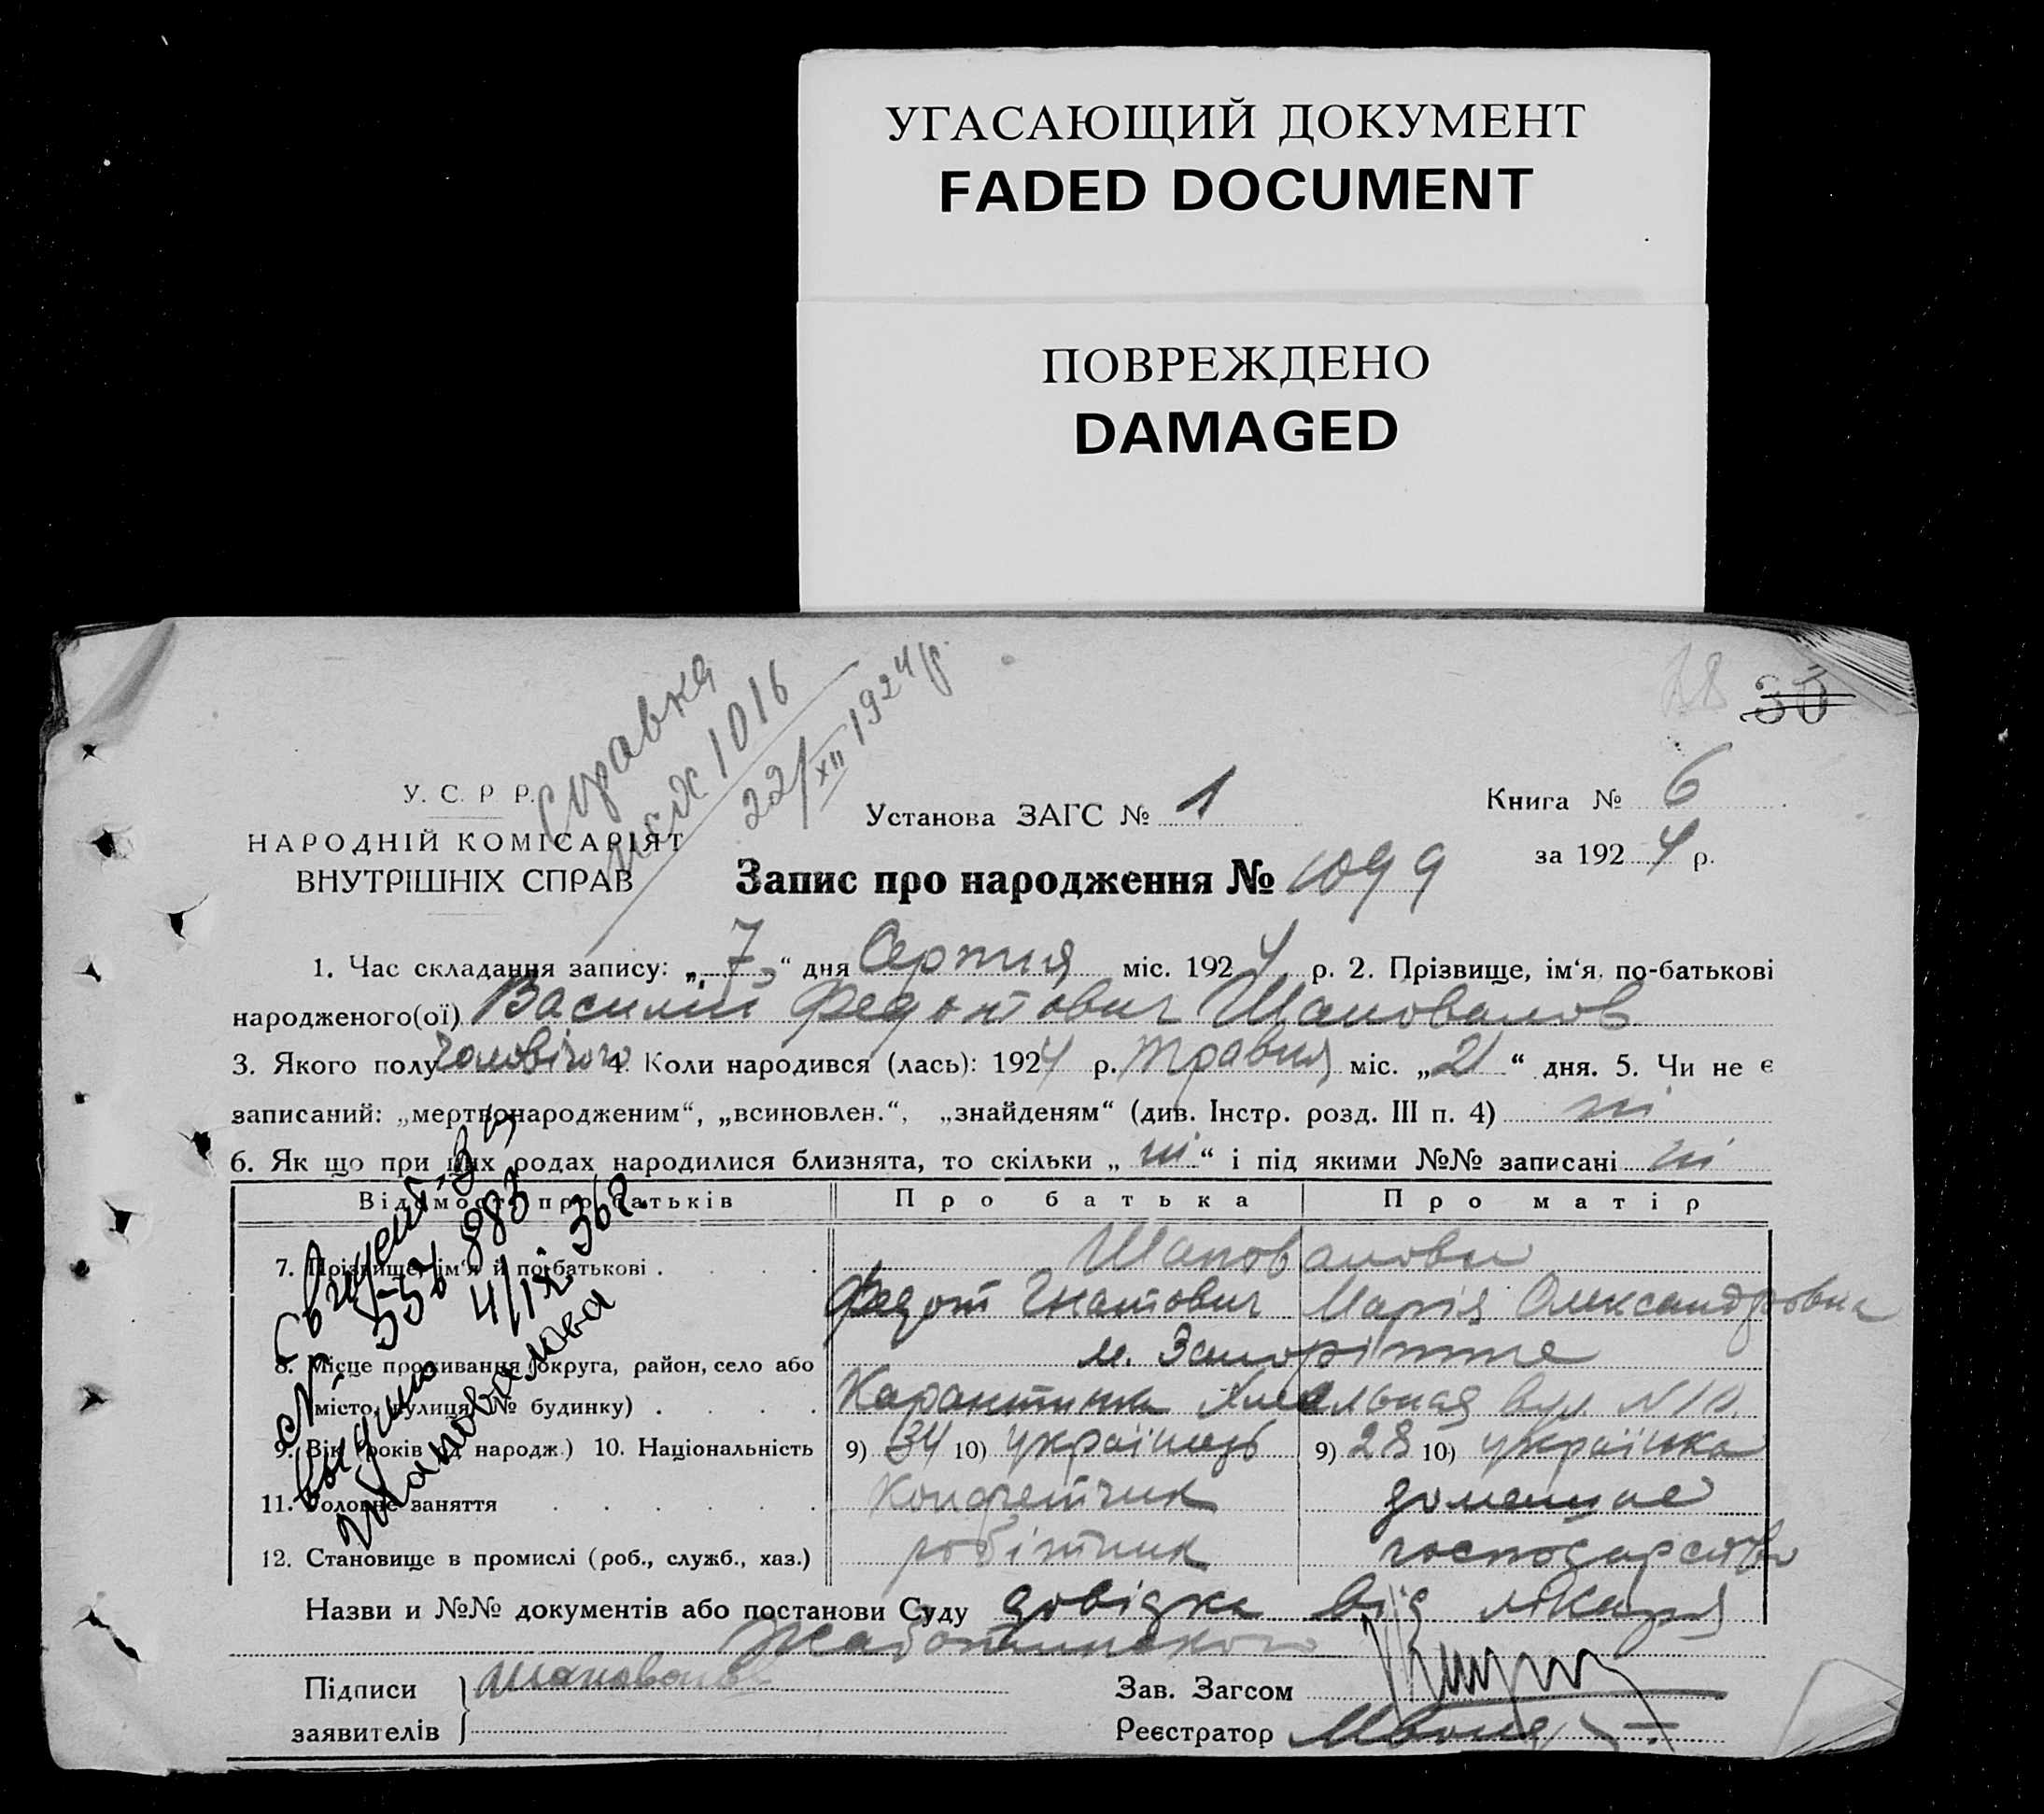 УГАСАЮЩИЙ ДОКУМЕНТ
FADED DOCUMENT
ПОВРЕЖДЕНО
DAMAGED
28 35
Справка
1016
22/XII 1924 р.
У. С. Р. Р.
НАРОДНІЙ КОМІСАРІЯТ
ВНУТРІШНІХ СПРАВ
Установа ЗАГС № 1
Книга № 6
за 1924 р.
Запис про народження № 1099
1. Час складання запису: „7“ дня Серпня міс. 1924 р. 2. Прізвище, ім‘я, по-батькові
народженого(ої) Василий Федотович Шаповалов
3. Якого полу чоловічого 4. Коли народився (лась): 1924 р. травня міс. „21“ дня. 5. Чи не є
записаний: „мертвонародженим“, „всиновлен.“, „знайденям“ (див. Інстр. розд. III п. 4) ні
6. Як що при цих родах народилися близнята, то скільки „ні“ і під якими №№ записані ні
Відомості про батьків Про батька Про матір
Шаповалови
7. Прізвище, ім‘я й по-батькові
Федот Гнатович Марія Олександровна
м. Запоріжже
8. Місце проживання (округа, район, село або
місто, вулиця, № будинку) Карантинка вул. N 10.
9. Вік (років від народж.) 10. Національність 9) 34 10) українець 9) 28 10) українка
11. Головне заняття Конфетчик домашнє
12. Становище в промислі (роб., служб., хаз.) робітник господарство
Назви и №№ документів або постанови Суду довідка від лікаря
Жаботинского
Підписи
заявителів
Шаповалов
Зав. Загсом
Реєстратор
выдано
Шаповалова